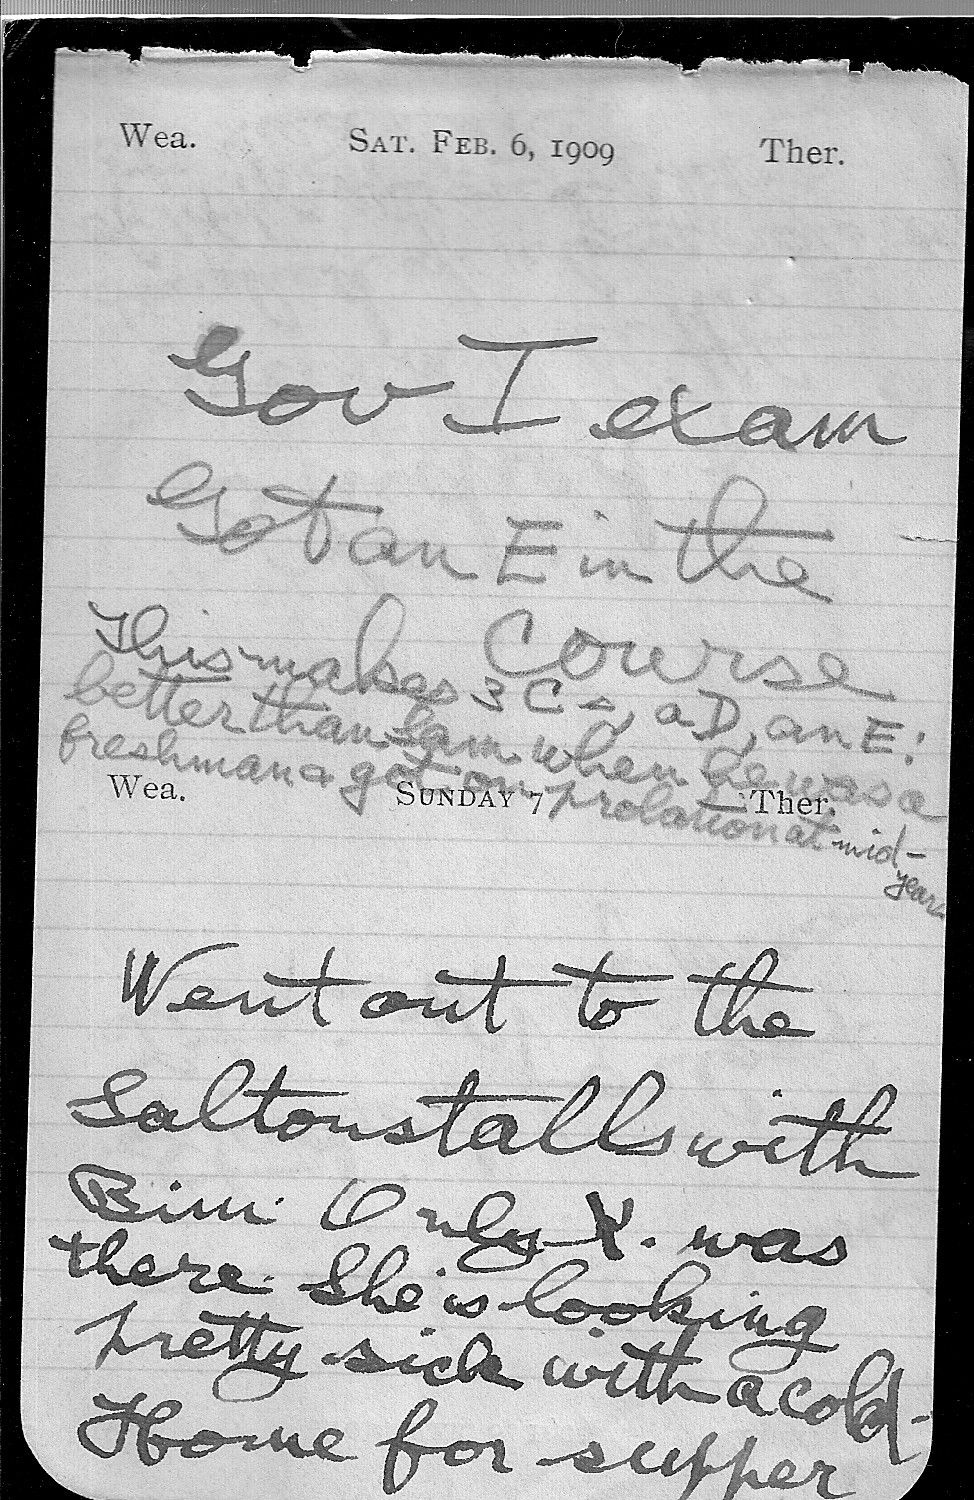 Wea. SAT. FEB. 6, 1909 Ther.
Gov I exam
Got an E in the
Course
This makes 3 Cs, a D, an E;
better than Sam when he was a
freshman & got on probation at mid-
years
Wea. SUNDAY 7 Ther.
Went out to the
Saltonstalls with
Bim. Only X. was
there. She is looking
pretty sick with a cold-
Home for supper